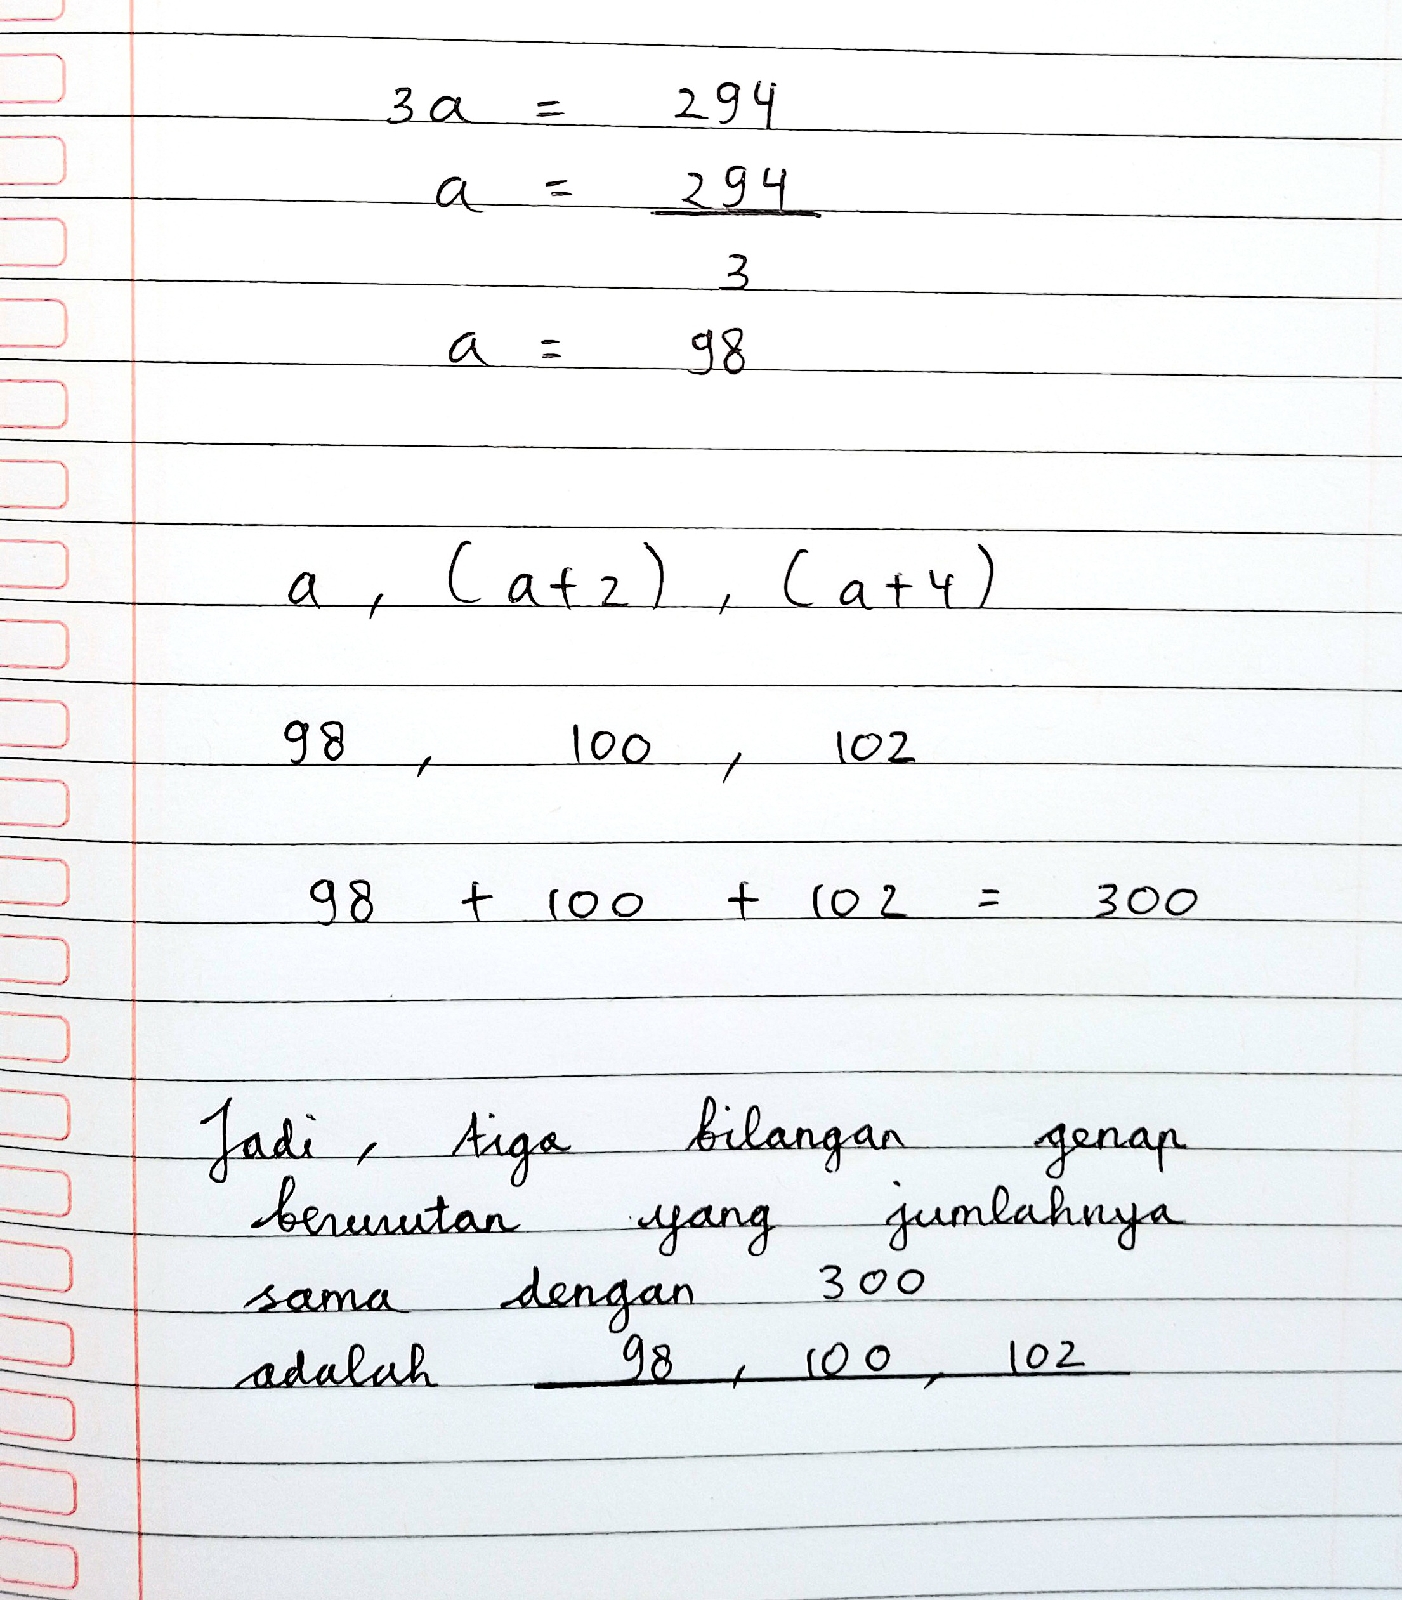 3a = 294
a = 294
3
a = 98
a, (a+2), (a+4)
98, 100, 102
98 + 100 + 102 = 300
Jadi, tiga bilangan genap
berurutan yang jumlahnya
sama dengan 300
adalah 98, 100, 102